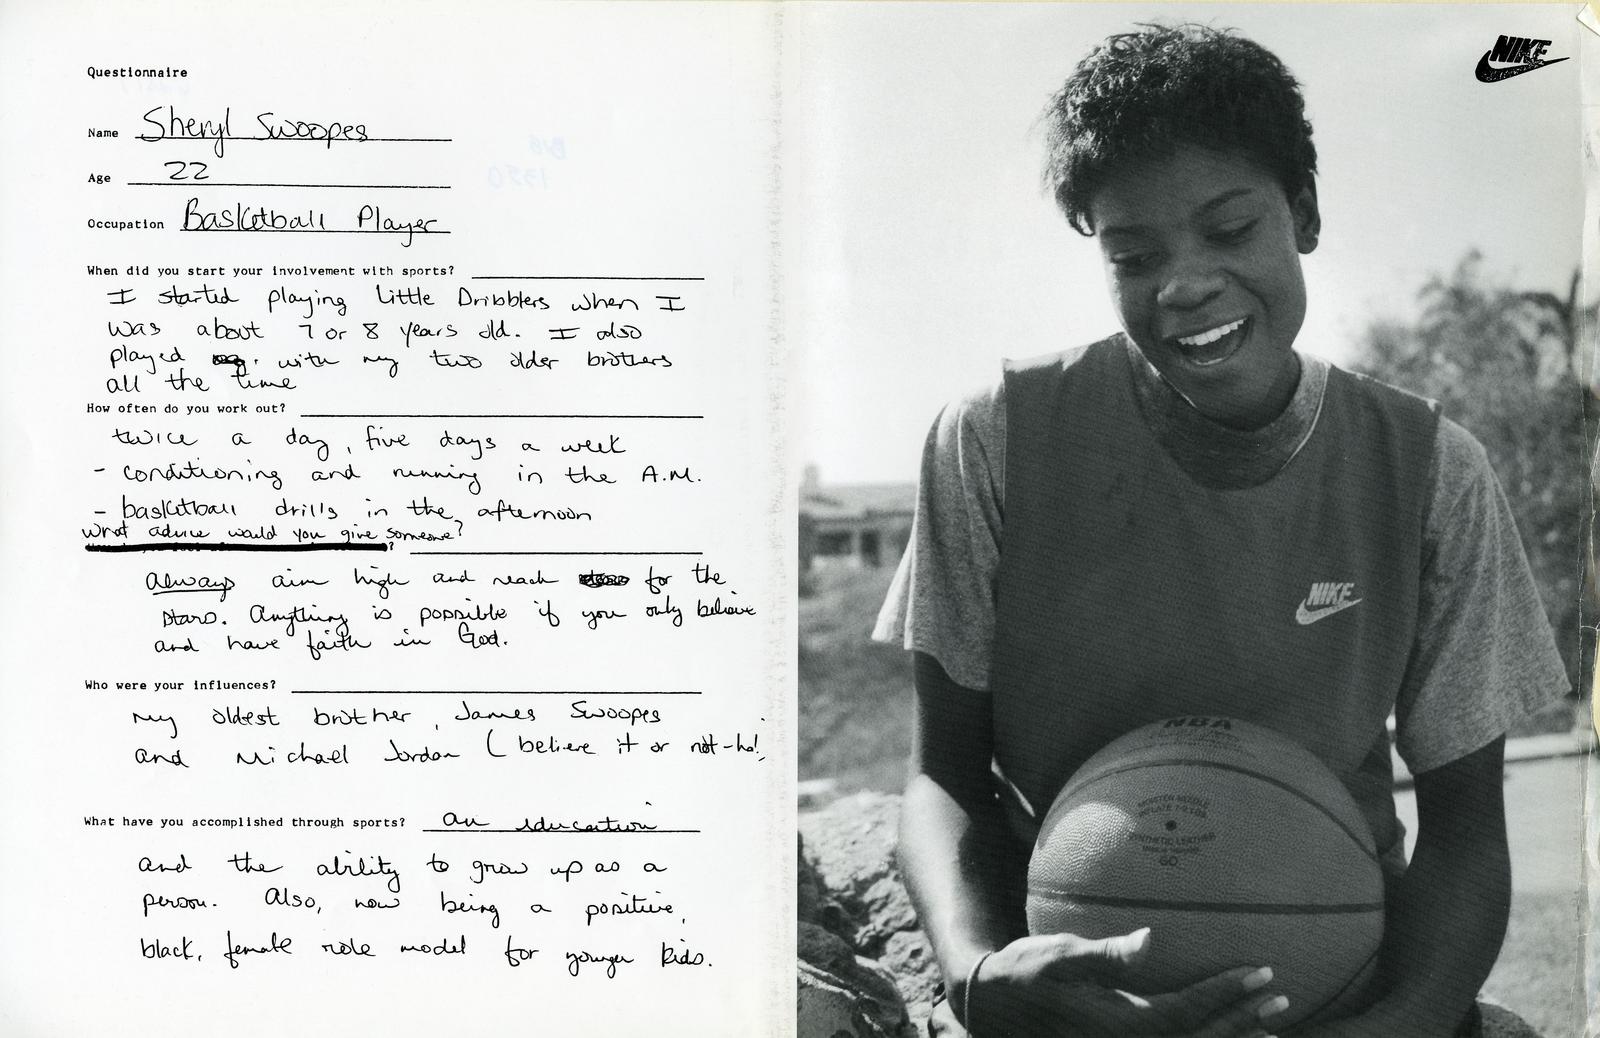 Questionnaire
Name Sheryl Swoopes
Age 22
Occupation Basketball Player
When did you start your involvement with sports?
I started playing Little Dribblers when I
was about 7 or 8 years old. I also
played with my two older brothers
all the time
How often do you work out?
twice a day, five days a week
- conditioning and running in the A.M.
- basketball drills in the afternoon
What advice would you give someone?
?
Always aim high and reach for the
stars. Anything is possible if you only believe
and have faith in God.
Who were your influences?
My oldest brother, James Swoopes
and Michael Jordan (believe it or not-ha!
What have you accomplished through sports? an education
and the ability to grow up as a
person. Also, now being a positive,
black, female role model for younger kids.
NIKE
NIKE
NBA
SYNTHETIC LEATHER